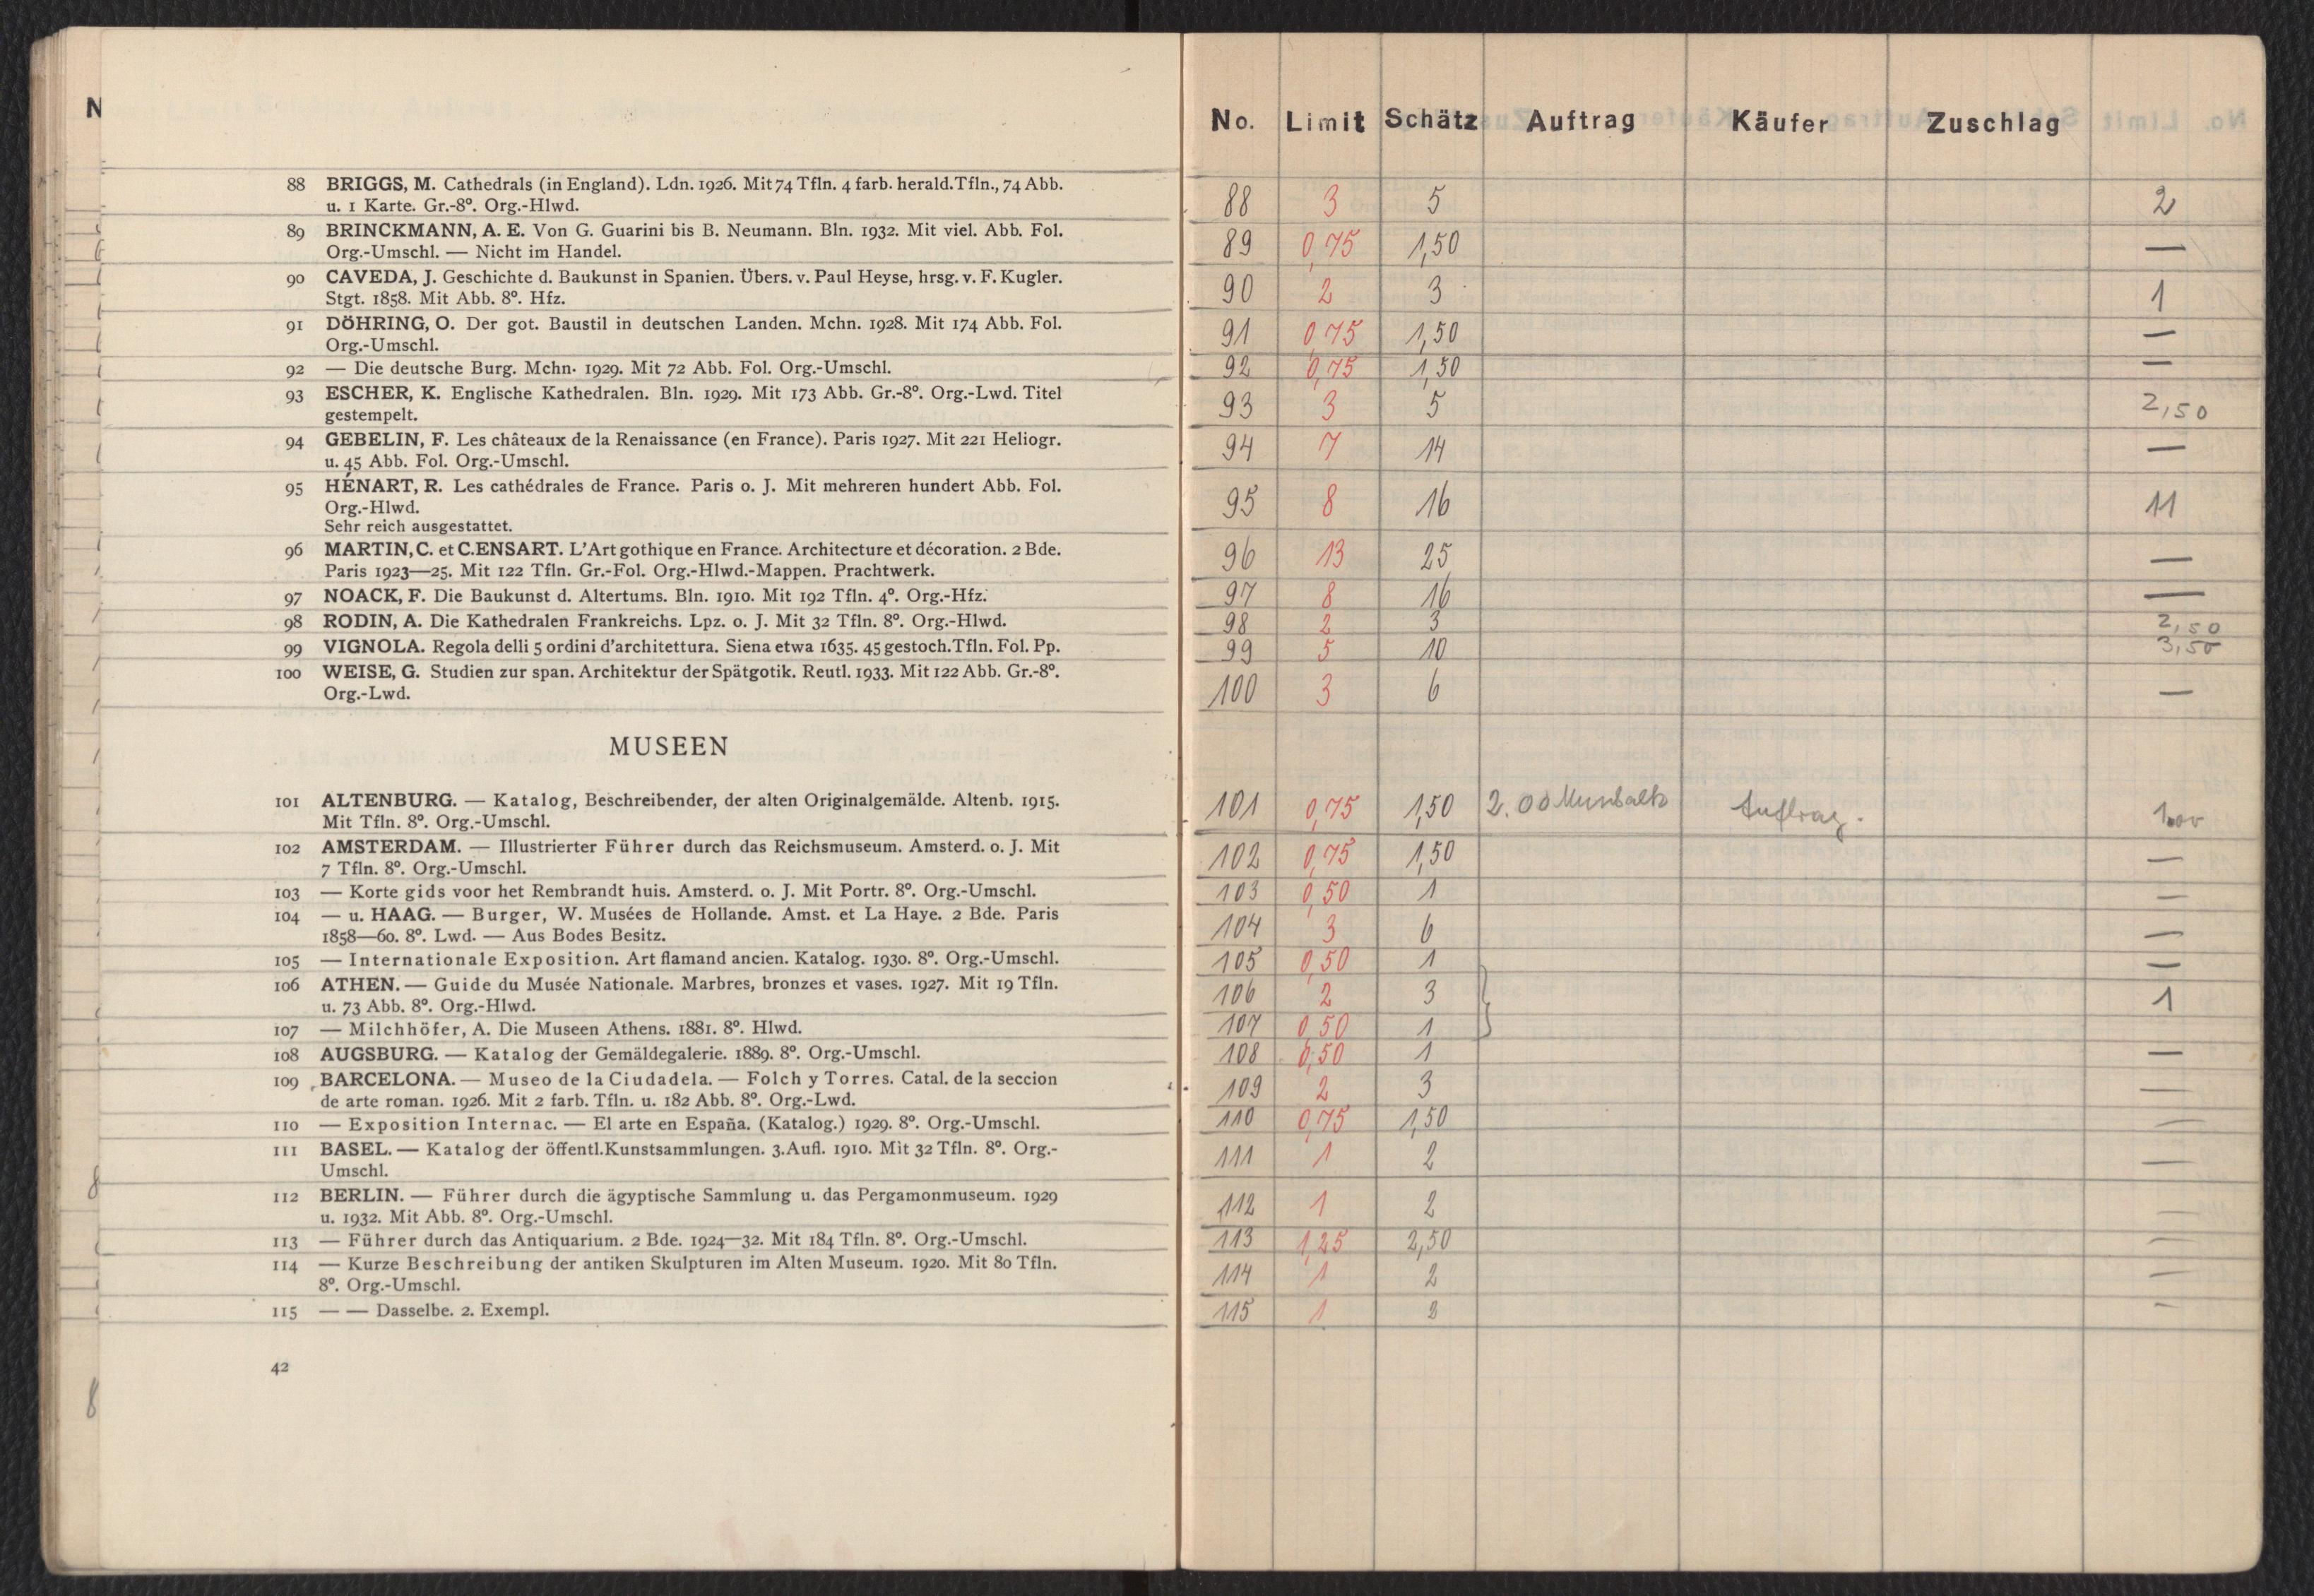 N
88 BRIGGS, M. Cathedrals (in England). Ldn. 1926. Mit 74 Tfln. 4 farb. herald. Tfln., 74 Abb.
u. 1 Karte. Gr.-8º. Org.-Hlwd.
89 BRINCKMANN, A. E. Von G. Guarini bis B. Neumann. Bln. 1932. Mit viel. Abb. Fol.
Org.-Umschl. — Nicht im Handel.
90 CAVEDA, J. Geschichte d. Baukunst in Spanien. Übers. v. Paul Heyse, hrsg. v. F. Kugler.
Stgt. 1858. Mit Abb. 8º. Hfz.
91 DÖHRING, O. Der got. Baustil in deutschen Landen. Mchn. 1928. Mit 174 Abb. Fol.
Org.-Umschl.
92 — Die deutsche Burg. Mchn. 1929. Mit 72 Abb. Fol. Org.-Umschl.
93 ESCHER, K. Englische Kathedralen. Bln. 1929. Mit 173 Abb. Gr.-8º. Org.-Lwd. Titel
gestempelt.
94 GEBELIN, F. Les châteaux de la Renaissance (en France). Paris 1927. Mit 221 Heliogr.
u. 45 Abb. Fol. Org.-Umschl.
95 HÉNART, R. Les cathédrales de France. Paris o. J. Mit mehreren hundert Abb. Fol.
Org.-Hlwd.
Sehr reich ausgestattet.
96 MARTIN, C. et C. ENSART. L'Art gothique en France. Architecture et décoration. 2 Bde.
Paris 1923—25. Mit 122 Tfln. Gr.-Fol. Org.-Hlwd.-Mappen. Prachtwerk.
97 NOACK, F. Die Baukunst d. Altertums. Bln. 1910. Mit 192 Tfln. 4º. Org.-Hfz.
98 RODIN, A. Die Kathedralen Frankreichs. Lpz. o. J. Mit 32 Tfln. 8º. Org.-Hlwd.
99 VIGNOLA. Regola delli 5 ordini d'architettura. Siena etwa 1635. 45 gestoch. Tfln. Fol. Pp.
100 WEISE, G. Studien zur span. Architektur der Spätgotik. Reutl. 1933. Mit 122 Abb. Gr.-8º.
Org.-Lwd.
MUSEEN
101 ALTENBURG. — Katalog, Beschreibender, der alten Originalgemälde. Altenb. 1915.
Mit Tfln. 8º. Org.-Umschl.
102 AMSTERDAM. — Illustrierter Führer durch das Reichsmuseum. Amsterd. o. J. Mit
7 Tfln. 8º. Org.-Umschl.
103 — Korte gids voor het Rembrandt huis. Amsterd. o. J. Mit Portr. 8º. Org.-Umschl.
104 — u. HAAG. — Burger, W. Musées de Hollande. Amst. et La Haye. 2 Bde. Paris
1858—60. 8º. Lwd. — Aus Bodes Besitz.
105 — Internationale Exposition. Art flamand ancien. Katalog. 1930. 8º. Org.-Umschl.
106 ATHEN. — Guide du Musée Nationale. Marbres, bronzes et vases. 1927. Mit 19 Tfln.
u. 73 Abb. 8º. Org.-Hlwd.
107 — Milchhöfer, A. Die Museen Athens. 1881. 8º. Hlwd.
108 AUGSBURG. — Katalog der Gemäldegalerie. 1889. 8º. Org.-Umschl.
109 BARCELONA. — Museo de la Ciudadela. — Folch y Torres. Catal. de la seccion
de arte roman. 1926. Mit 2 farb. Tfln. u. 182 Abb. 8º. Org.-Lwd.
110 — Exposition Internac. — El arte en España. (Katalog.) 1929. 8º. Org.-Umschl.
111 BASEL. — Katalog der öffentl. Kunstsammlungen. 3. Aufl. 1910. Mit 32 Tfln. 8º. Org.-
Umschl.
112 BERLIN. — Führer durch die ägyptische Sammlung u. das Pergamonmuseum. 1929
u. 1932. Mit Abb. 8º. Org.-Umschl.
113 — Führer durch das Antiquarium. 2 Bde. 1924—32. Mit 184 Tfln. 8º. Org.-Umschl.
114 — Kurze Beschreibung der antiken Skulpturen im Alten Museum. 1920. Mit 80 Tfln.
8º. Org.-Umschl.
115 — — Dasselbe. 2. Exempl.
42
No. Limit Schätz Auftrag Käufer Zuschlag
88 3 5 2
89 0,75 1,50 —
90 2 3 1
91 0,75 1,50 —
92 0,75 1,50 —
93 3 5 2,50
94 7 14 —
95 8 16 11
96 13 25 —
97 8 16 —
98 2 3 2,50
99 5 10 3,50
100 3 6 —
101 0,75 1,50 2.00 Auftrag.
102 0,75 1,50 —
103 0,50 1 —
104 3 6 —
105 0,50 1 —
106 2 3 1
107 0,50 1
108 0,50 1 —
109 2 3 —
110 0,75 1,50 —
111 1 2 —
112 1 2 —
113 1,25 2,50 —
114 1 2 —
115 1 2 —